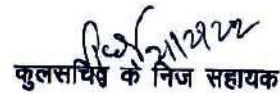 कुलसचिव के निज सहायक